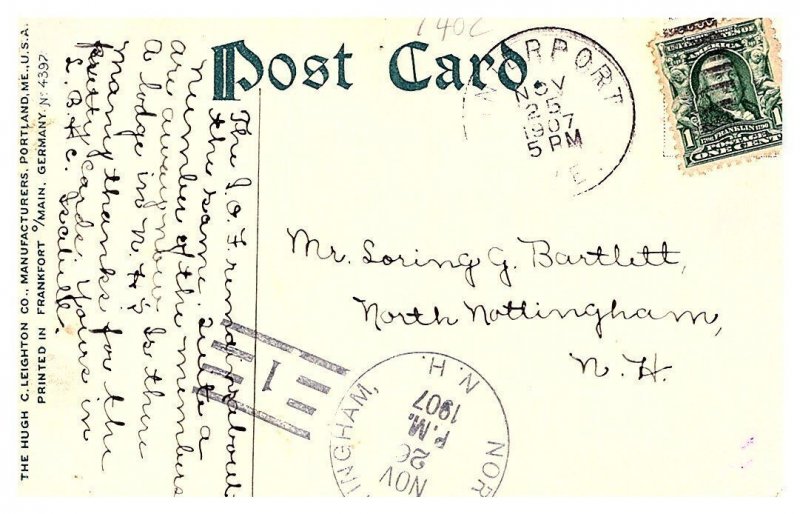 THE HUGH C. LEIGHTON CO., MANUFACTURERS, PORTLAND, ME., U.S.A.
PRINTED IN FRANKFORT O/MAIN, GERMANY. No 4397
Post Card
The I.O.F. remains about
the same. Quite a
number of the members
are away now. Is there
a lodge in N. H.?
many thanks for the
pretty cards. Yours in
L. B. & C. Isabelle.
TERPORT
NOV
25
1907
5 PM
E.
UNITED STATES OF AMERICA
1706 FRANKLIN 1790
POSTAGE
1 ONE CENT 1
Mr. Loring G. Bartlett,
North Nottingham,
N. H.
1
NOR TINGHAM, N.H.
NOV
26
P.M.
1907